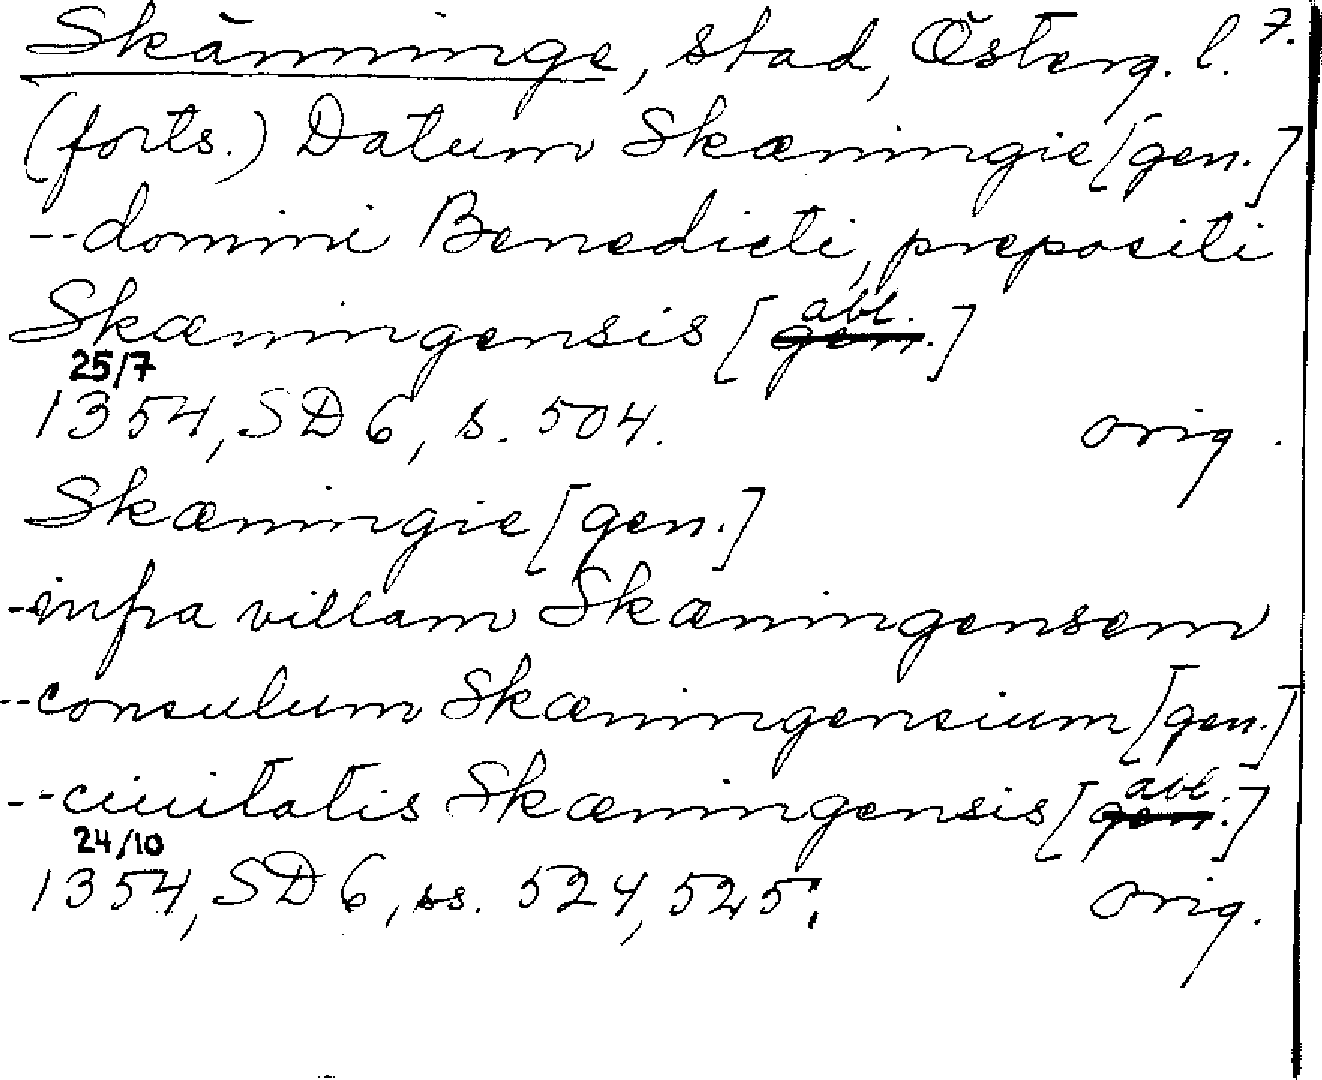 Skänninge, stad, Österg. l. 7.
(forts.) Datum Skæningie [gen.]
-- domini Benedicti, prepositi
Skæningensis [gen. abl.]
25/7
1354, SD 6, s. 504. orig.
Skæningie [gen.]
- infra villam Skæningensem
-- consulum Skæningensium [gen.]
-- ciuitatis Skæningensis [gen. abl.]
24/10
1354, SD 6, ss. 524, 525. orig.